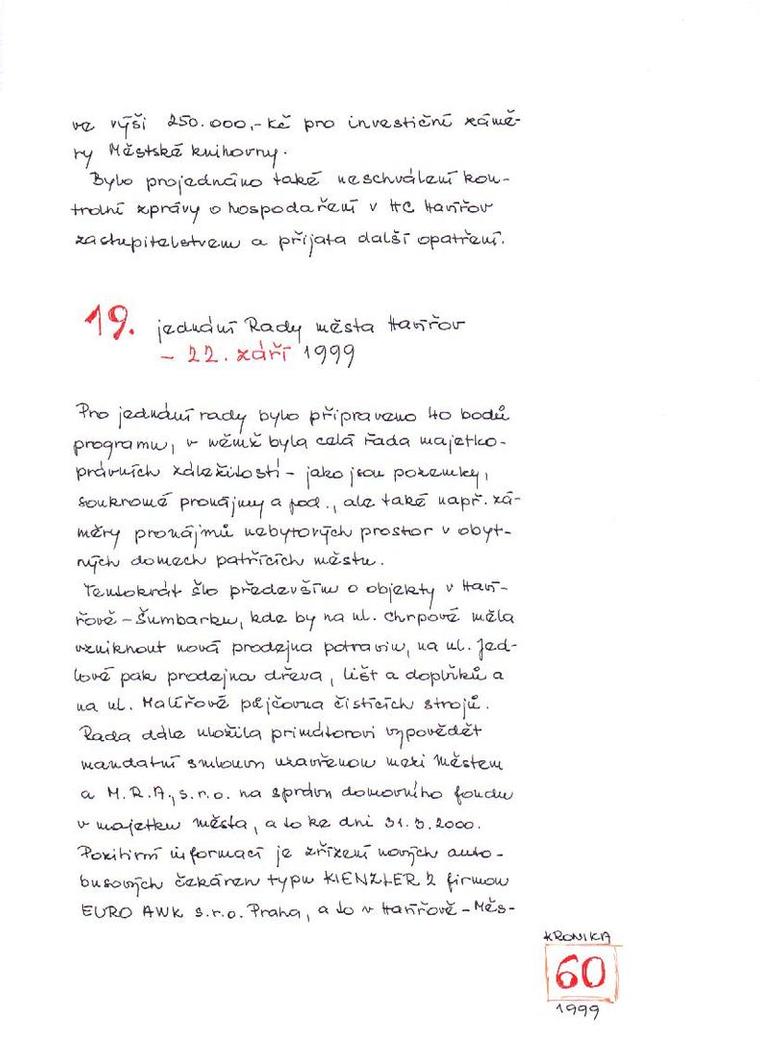 ve výši 250.000,- Kč pro investiční zámě-
ry Městské knihovny.
Bylo projednáno také neschválení kon-
trolní zprávy o hospodaření v HC Havířov
zastupitelstvem a přijata další opatření.
19. jednání Rady města Havířov
- 22. září 1999
Pro jednání rady bylo připraveno 40 bodů
programu, v němž byla celá řada majetko-
právních záležitostí - jako jsou pozemky,
soukromé pronájmy a pod., ale také např. zá-
měry pronájmů nebytových prostor v obyt-
ných domech patřících městu.
Tentokrát šlo především o objekty v Haví-
řově - Šumbarku, kde by na ul. Chrpové měla
vzniknout nová prodejna potravin, na ul. Jed-
lové pak prodejna dřeva, lišt a doplňků a
na ul. Malířově půjčovna čisticích strojů.
Rada dále uložila primátorovi vypovědět
mandatní smlouvu uzavřenou mezi Městem
a M.R.A., s.r.o. na správu domovního fondu
v majetku města, a to ke dni 31.3.2000.
Pozitivní informací je zřízení nových auto-
busových čekáren typu KIENZLER 2 firmou
EURO AWK s.r.o. Praha, a to v Havířově - Měs-
KRONIKA
60
1999